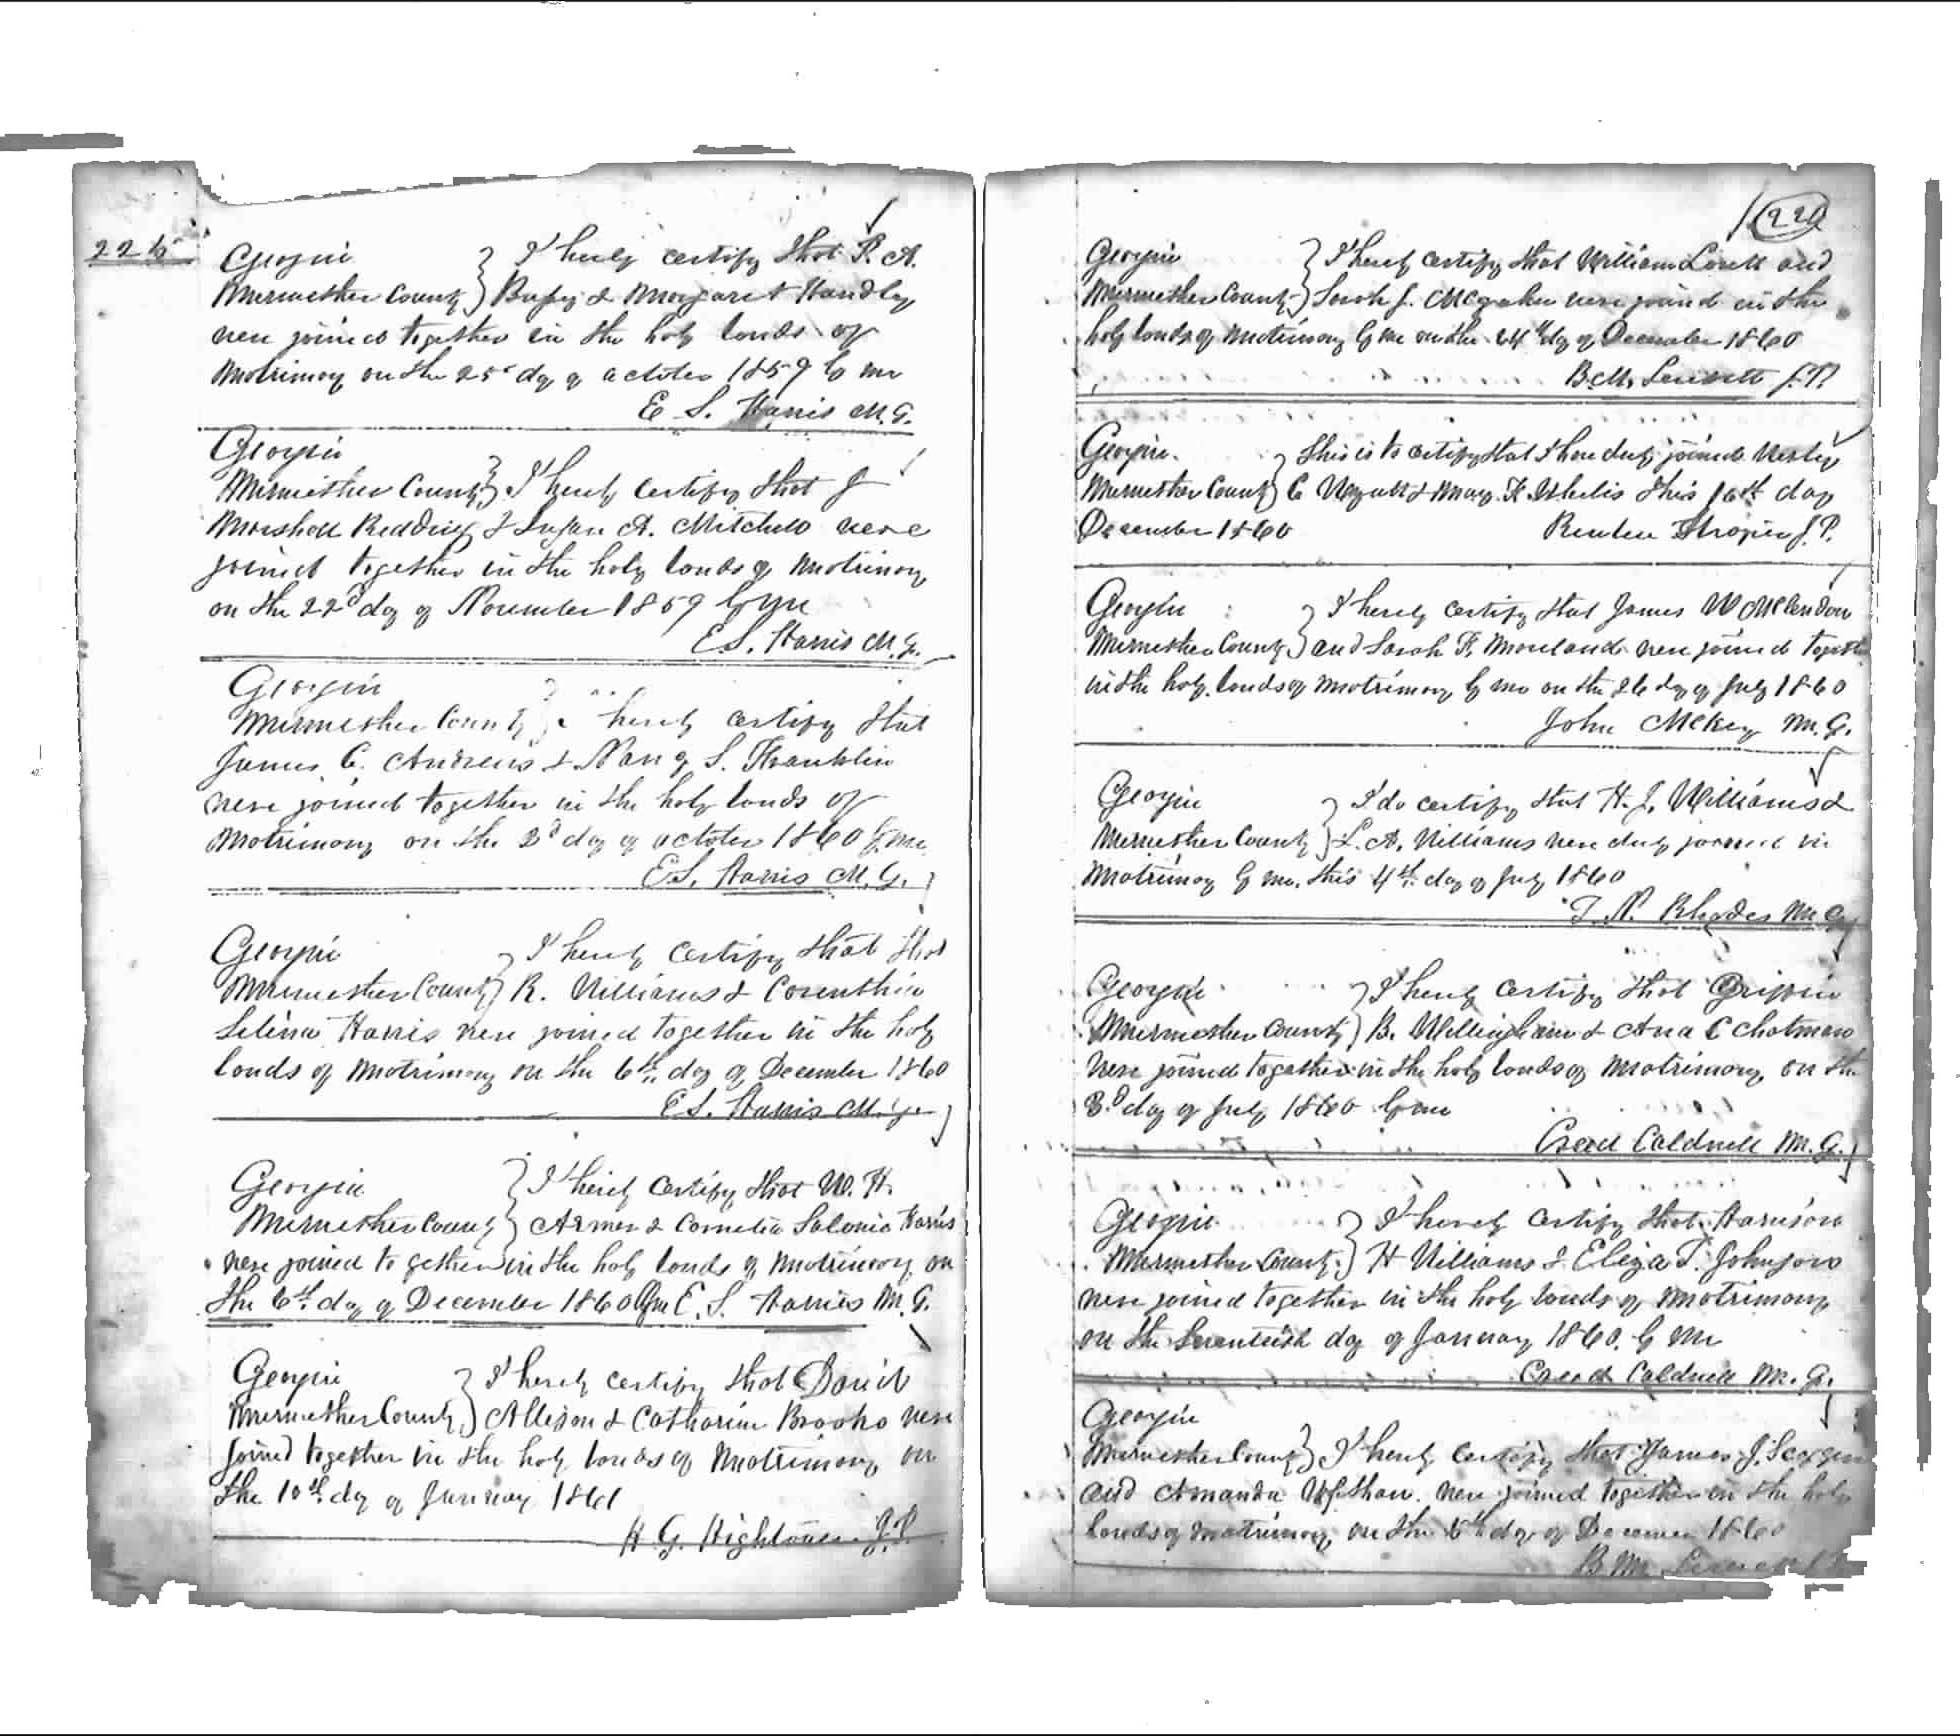 225
Georgia } I hereby certify that P. A.
Merriwether County } Bussey & Margaret Handley
were joined together in the holy bonds of
Matrimony on the 25th day of October 1859 by me
E. S. Harris M. G.
Georgia
Merriwether County } I hereby certify that J
Marshall Redding & Susan A. Mitchell were
joined together in the holy bonds of Matrimony
on the 22d day of November 1859 by me
E. S. Harris M. G.
Georgia
Merriwether County } I hereby certify that
James C. Andrews & Nancy S. Franklin
were joined together in the holy bonds of
Matrimony on the 3d day of October 1860 by me
E. S. Harris M. G.
Georgia } I hereby certify that Thos
Merriwether County } R. Williams & Corinthia
Selina Harris were joined together in the holy
bonds of Matrimony on the 6th day of December 1860
E. S. Harris M. G.
Georgia } I hereby certify that W. H.
Merriwether County } Armer & Cornelia Salonia Harris
were joined together in the holy bonds of Matrimony on
the 6th day of December 1860 by me E. S. Harris M. G.
Georgia } I hereby certify that David
Merriwether County } Allison & Catharine Brooks were
Joined together in the holy bonds of Matrimony on
the 10th day of January 1861
H. G. Hightower J. P.
Georgia } I hereby certify that William Lovett and
Merriwether County } Sarah J. were joined in the
holy bonds of Matrimony by me on the 24th day of December 1860
B. M. Leverett J. P.
Georgia This is to certify that I have duly joined Wesley
Merriwether County } C & Mary F. Whelis this 16th day
December 1860 Reuben Strozier J. P.
Georgia } I hereby certify that James W McClendon
Merriwether County } and Sarah F. Moreland were joined together
in the holy bonds of Matrimony by me on the 26 day of July 1860
John McKey M. G.
Georgia } I do certify that H. J. Williams &
Merriwether County } L. A. Williams were duly joined in
Matrimony by me, this 4th day of July 1860
T. N. Rhodes M. G.
Georgia } I hereby certify that Griffin
Merriwether County } B. Willingham & Ana C Chatman
were joined together in the holy bonds of Matrimony, on the
3d day of July 1860 by me
Creed Caldwell M. G.
Georgia } I hereby certify that Harrison
Merriwether County } H Williams & Eliza T. Johnson
were joined together in the holy bonds of Matrimony
on the Seventeeth day of January 1860. by me
Creed Caldwell M. G.
Georgia
Merriwether County } I hereby certify that James J. Scogin
and Amanda were joined together in the holy
bonds of Matrimony on the day of December 1860
B. M. Leverett